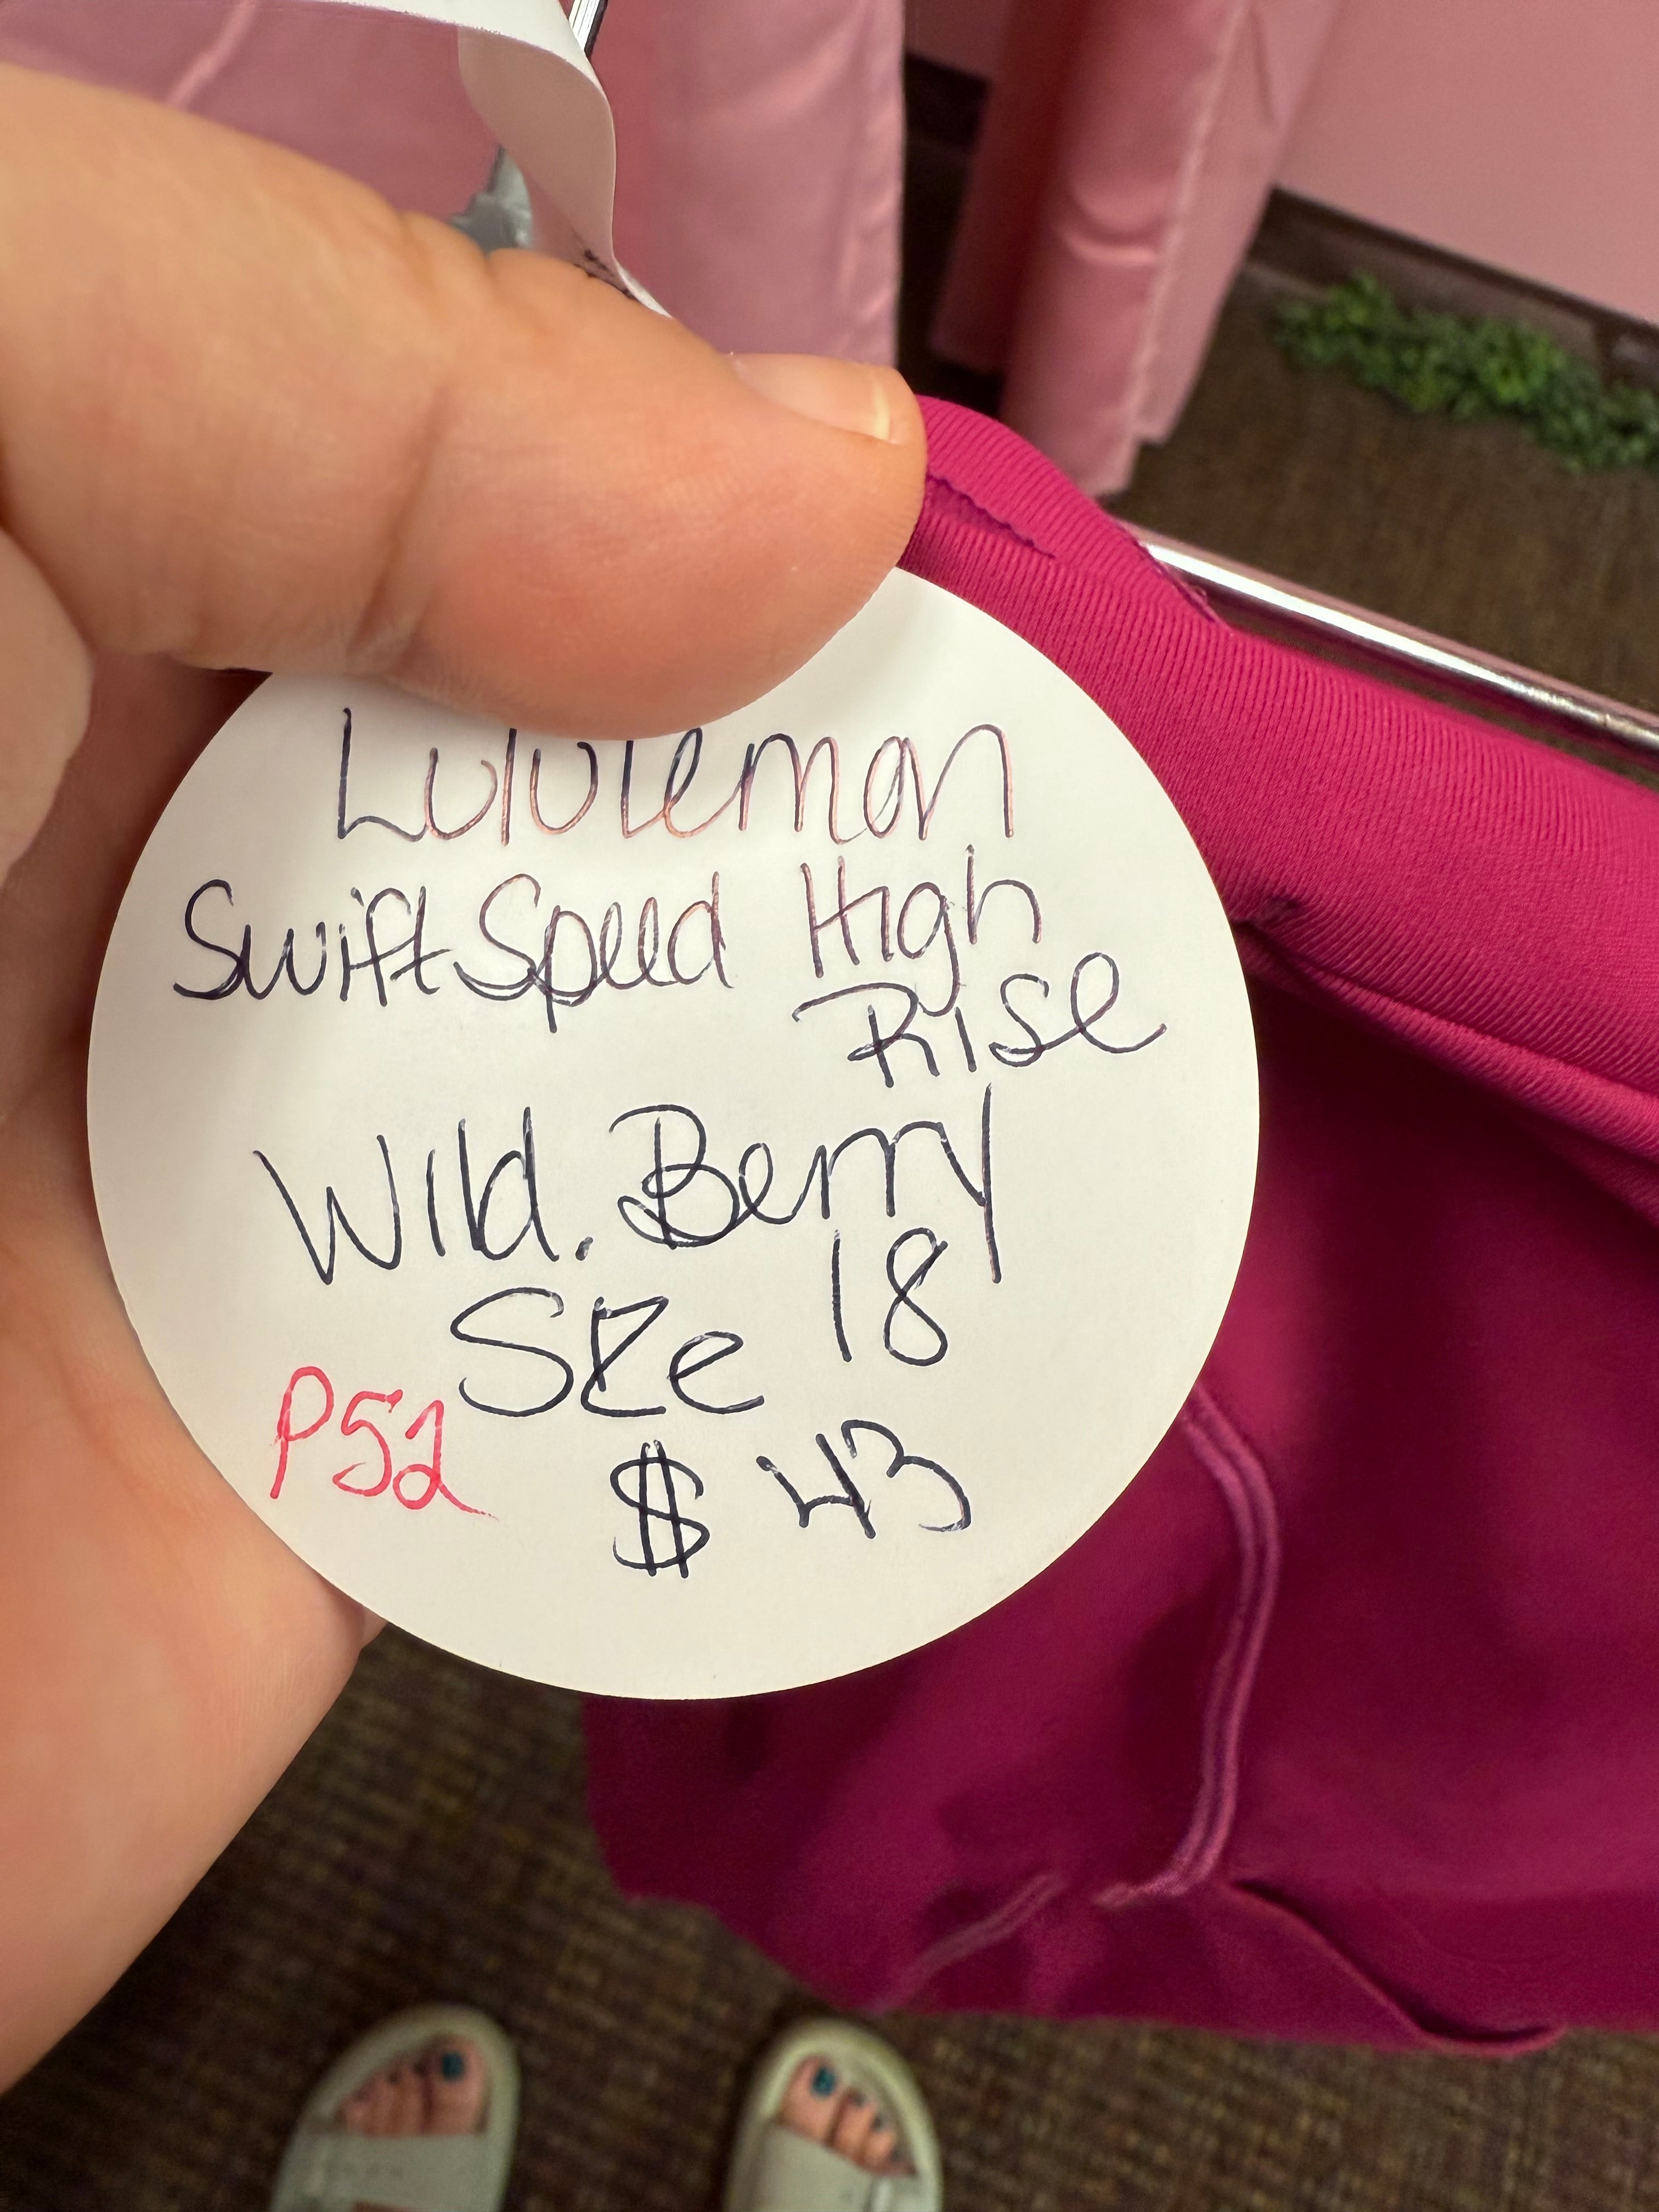 Lululemon
Swift Speed High
Rise
Wild. Berry
Size 18
P52 $ 43